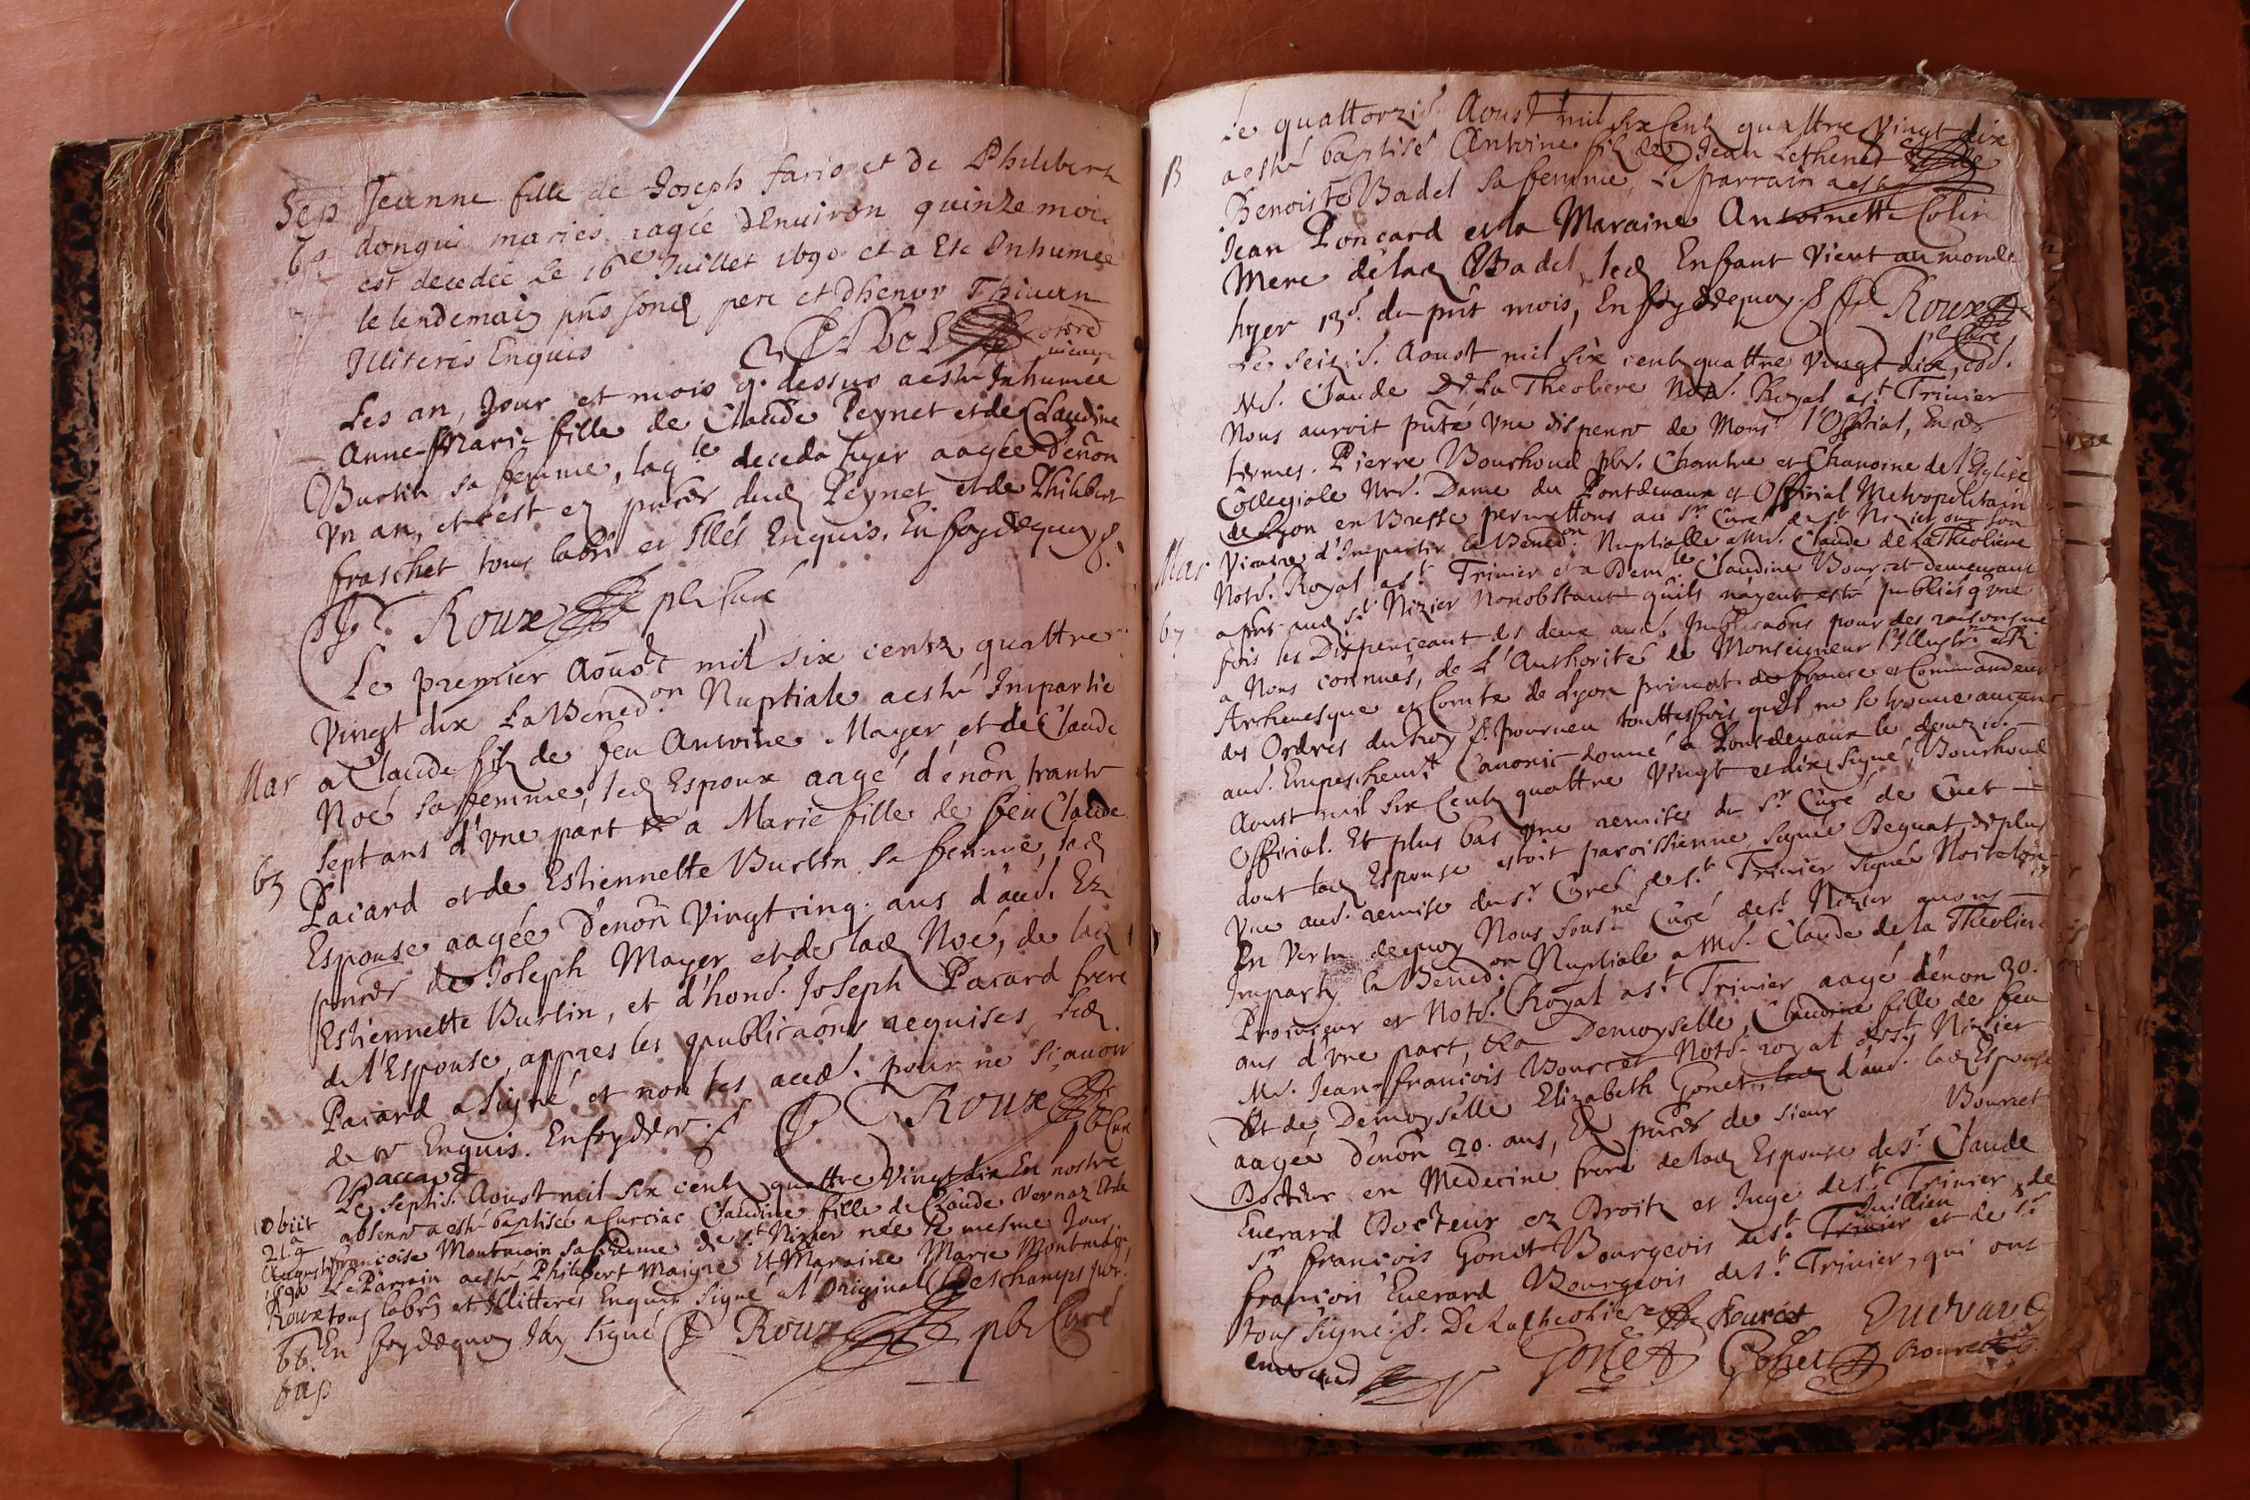 Sep Jeanne fille de Joseph fario et de Philiberte
donguis mariés aagée denuiron quinze mois
est decedée Le 16e Juillet 1690 et a Ete Inhumée
le lendemain pns sond pere et dhenry Thiuan
Illiterés Enquis
Les an, Jour et mois q. dessus aesté Inhumée
Anne-Marie fille de Claude Peynet et de Claudine
Burtin sa femme, laqle deceda hyer aagée d'enon
Vn an, et c'est en pnces dud Peynet et de Philibert
fraschet tous labrs et Illés Enquis. En foy dequoy
Roux pbr Curé
Le premier Aoust mil six centz quattre
Vingt dix La Benedon Nuptiale aesté Impartie
Mar a Claude filz de feu Antoine Mayer, et de Claude
Noé sa femme, led Espoux aagé d'enon trante
sept ans d'vne part & a Marie fille de feu Claude
63 Pacard et de Estiennette Burtin sa femme, lad
Espouse aagée d'enon Vingt cinq. ans d'aud. Ez
pnces de Joseph Mayer et de lad Noé, de lad
Estiennette Burtin, et d'hons. Joseph Pacard frere
de l'Espouse, appres les publicaons requises, led
Pacard a signé et non les aud. pour ne sçauoir
de ce Enquis. En foy de ce. Roux pbr Curé
paccard
Le septie. Aoust mil six centz quattre Vingt dix En nostre
Obiit absence aesté baptisée a Curciac Claudine fille de Claude Vernaz et de
21a Augusti francoise Montmain sa femme de st. Nizier née le mesme Jour
1690 Le Parrain aesté Philibert Maigne Et Maraine Marie Montmain
Roux tous labrs et Illitterés Enquis signé a l'original Deschamps pbr.
66. En foy dequoy J'ay signé Roux pbr Curé
Bap
Le quattorzie. Aoust mil six Centz quattre Vingt dix
B aesté baptisé Antoine filz de Jean Lethenet et de
Benoiste Badel sa femme, Le parrain aesté
Jean Poncard et la Maraine Antoinette Colin
Mere de lad Badel, led Enfant Vient au monde
hyer 13e. du pnt mois, En foy dequoy. Roux
pbr Curé
Le seizie. Aoust mil six centz quattre Vingt dix,
Me. Claude De La Theoliere Note. Royal a st. Trivier
Nous auroit pnté vne dispense de Monsr. l'Official, En ces
termes. Pierre Bourhoud pbr. Chantre et Chanoine de l'Eglise
Collegiale Nre. Dame du Pontdevaux et Official Metropolitain
de Lyon en Bresse permettons au sr. Curé de st. Nizier ou son
Mar Vicaire d'Impartir la Benedon Nuptialle a Me. Claude de la Theoliere
Note. Royal a st. Trivier et a Demlle Claudine Bourcet demeurant
67 aud st. Nizier Nonobstant qu'ils nayent esté publiés qvne
fois les Dispençeant des deux aud. publicaons pour des raisons
a Nous connues, de L'Authorité de Monseigneur l'Illustme
Archeuesque et Comte de Lyon primat de france et Commandeur
des Ordres du Roy pourueu touttesfois qu'il ne se trouue aucun
aud. Empeschemt Canonic donné a Pontdevaux le douzie.
Aoust mil six Centz quattre Vingt et dix, signé, Bourhoud
Official. Et plus bas vne remise du sr. Curé de Cuet
dont lad Espouse estoit paroissienne, signée Deguat, de plus
vne aud. remise du sr. Curé de st. Trivier signée Noitelon
En Vertu dequoy Nous sousné Curé de st. Nizier auons
Imparty la Benedon Nuptiale a Me. Claude de la Theoliere
Procureur et Note. Royal a st. Trivier aagé d'enon 30.
ans d'vne part, & a Demoyselle, Claudine fille de feu
Me. Jean-francois Bourcet Note. royal a st Nizier
Et de Demoyselle Elizabeth Gonet, d'aud. lad Espouse
aagée d'enon 20. ans, En pnces de sieur Bourcet
Docteur en Medecine frere de lad Espouse de sr. Claude
Euerard Docteur ez Droitz et Juge de st. Trivier, de
sr francois Gonet Bourgeois de st. Juillien et de sr
francois Euerard Bourgeois de st. Trivier, qui ont
tous signé. De Latheoliere Bourcet Euerard
euerard Gonet Gonet Bourcet